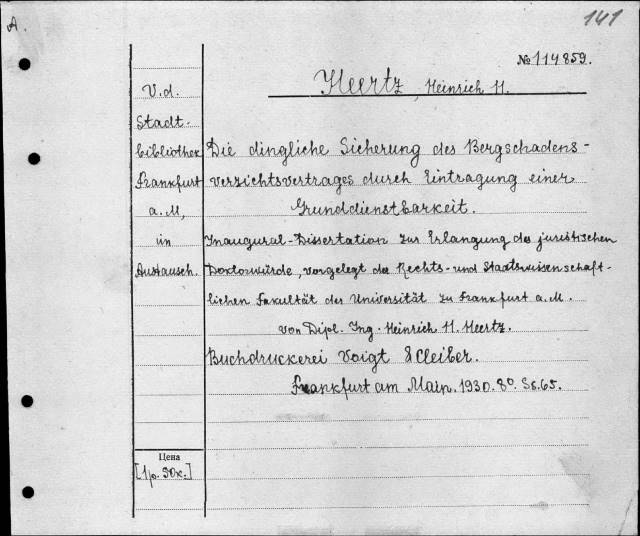 A.
141
№114859.
Heertz, Heinrich H.
V.d.
Stadt-
bibliothek
Frankfurt
a.M,
in
Austausch.
Die dingliche Sicherung des Bergschadens-
verzichtsvertrages durch Eintragung einer
Grunddienstbarkeit.
Inaugural-Dissertation zur Erlangung der juristischen
Doktorwürde, vorgelegt der Rechts- und Staatswissenschaft-
lichen Fakultät der Universität zu Frankfurt a.M.
von Dipl. Ing. Heinrich H. Heertz.
Buchdruckerei Voigt & Cleiber.
Frankfurt am Main. 1930. 8º. Ss. 65.
Цена
[1p. 50к.]